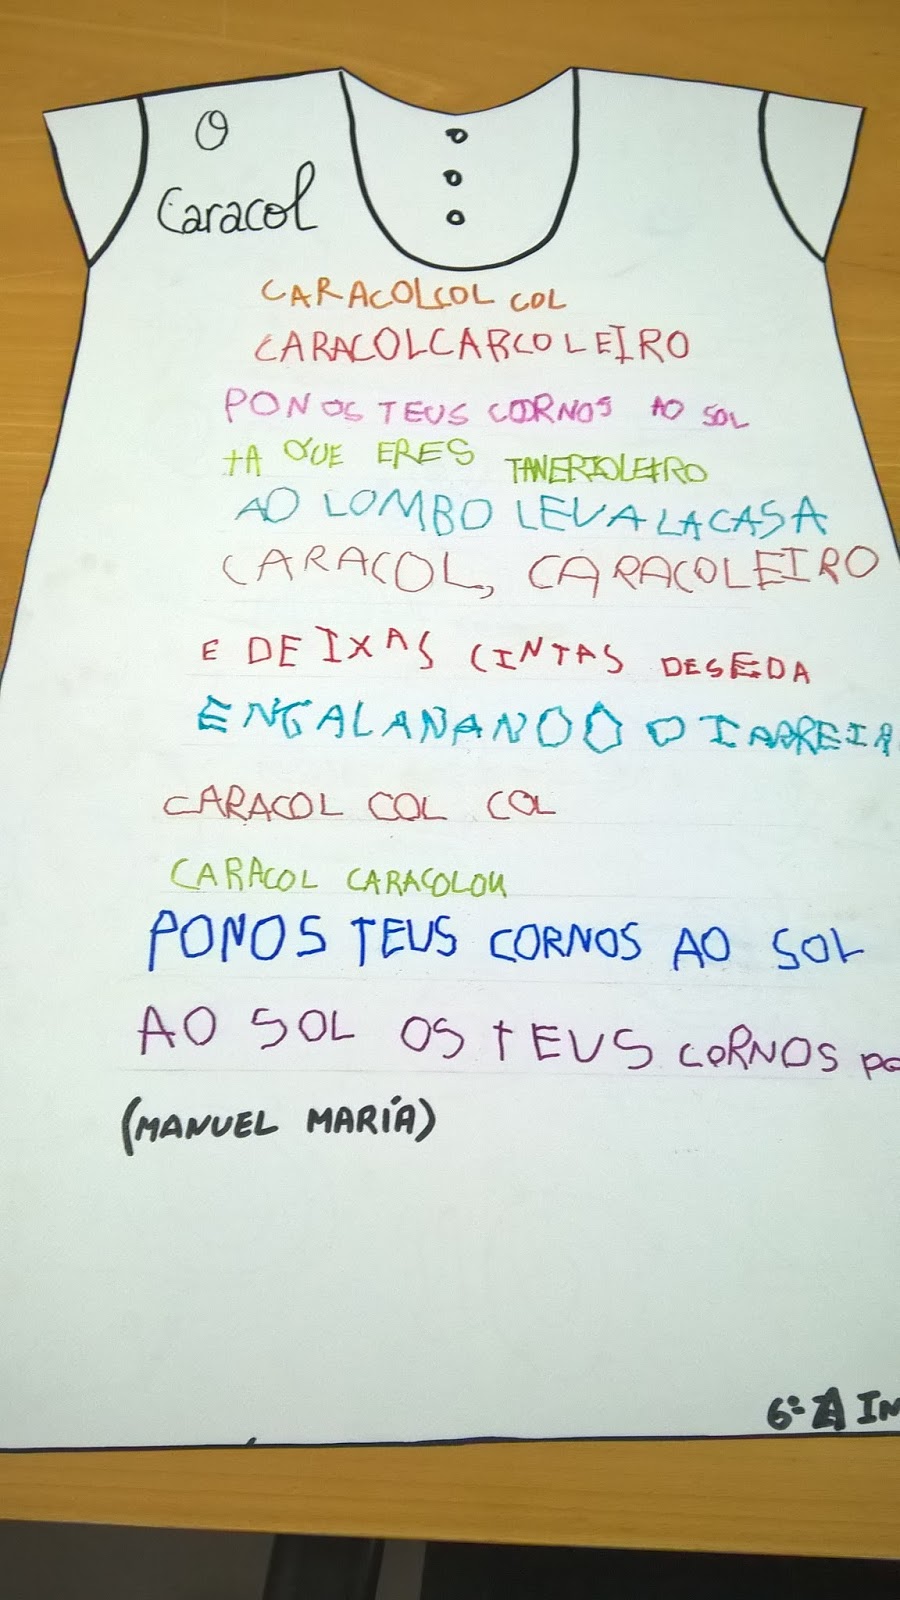 O
Caracol
CARACOLCOL COL
CARACOLCARCOLEIRO
PON OS TEUS CORNOS AO SOL
TA QUE ERES
AO LOMBO LEVALACASA
CARACOL, CARACOLEIRO
E DEIXAS CINTAS DESEDA
ENGALANANDO O
CARACOL COL COL
CARACOL CARACOLOU
PONOS TEUS CORNOS AO SOL
AO SOL OS TEUS CORNOS PO
(MANUEL MARÍA)
6º A IN